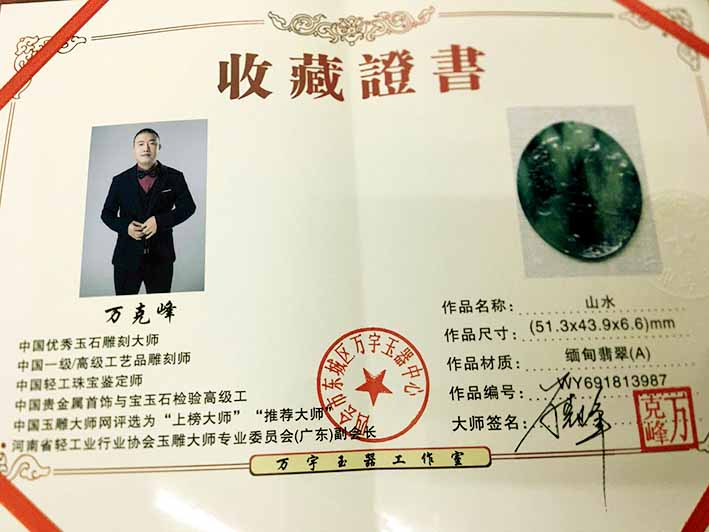 收藏證書
万克峰
中国优秀玉石雕刻大师
中国一级/高级工艺品雕刻师
中国轻工珠宝鉴定师
中国贵金属首饰与宝玉石检验高级工
中国玉雕大师网评选为“上榜大师” “推荐大师”
河南省轻工业行业协会玉雕大师专业委员会(广东)副会长
作品名称: 山水
作品尺寸: (51.3x43.9x6.6)mm
作品材质: 缅甸翡翠(A)
作品编号: WY691813987
大师签名:
万克峰
市东城区万宇玉器中心
万宇玉器工作室